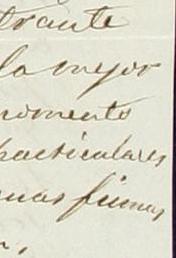 trante
la mejor
momento
particulares
nas firmas